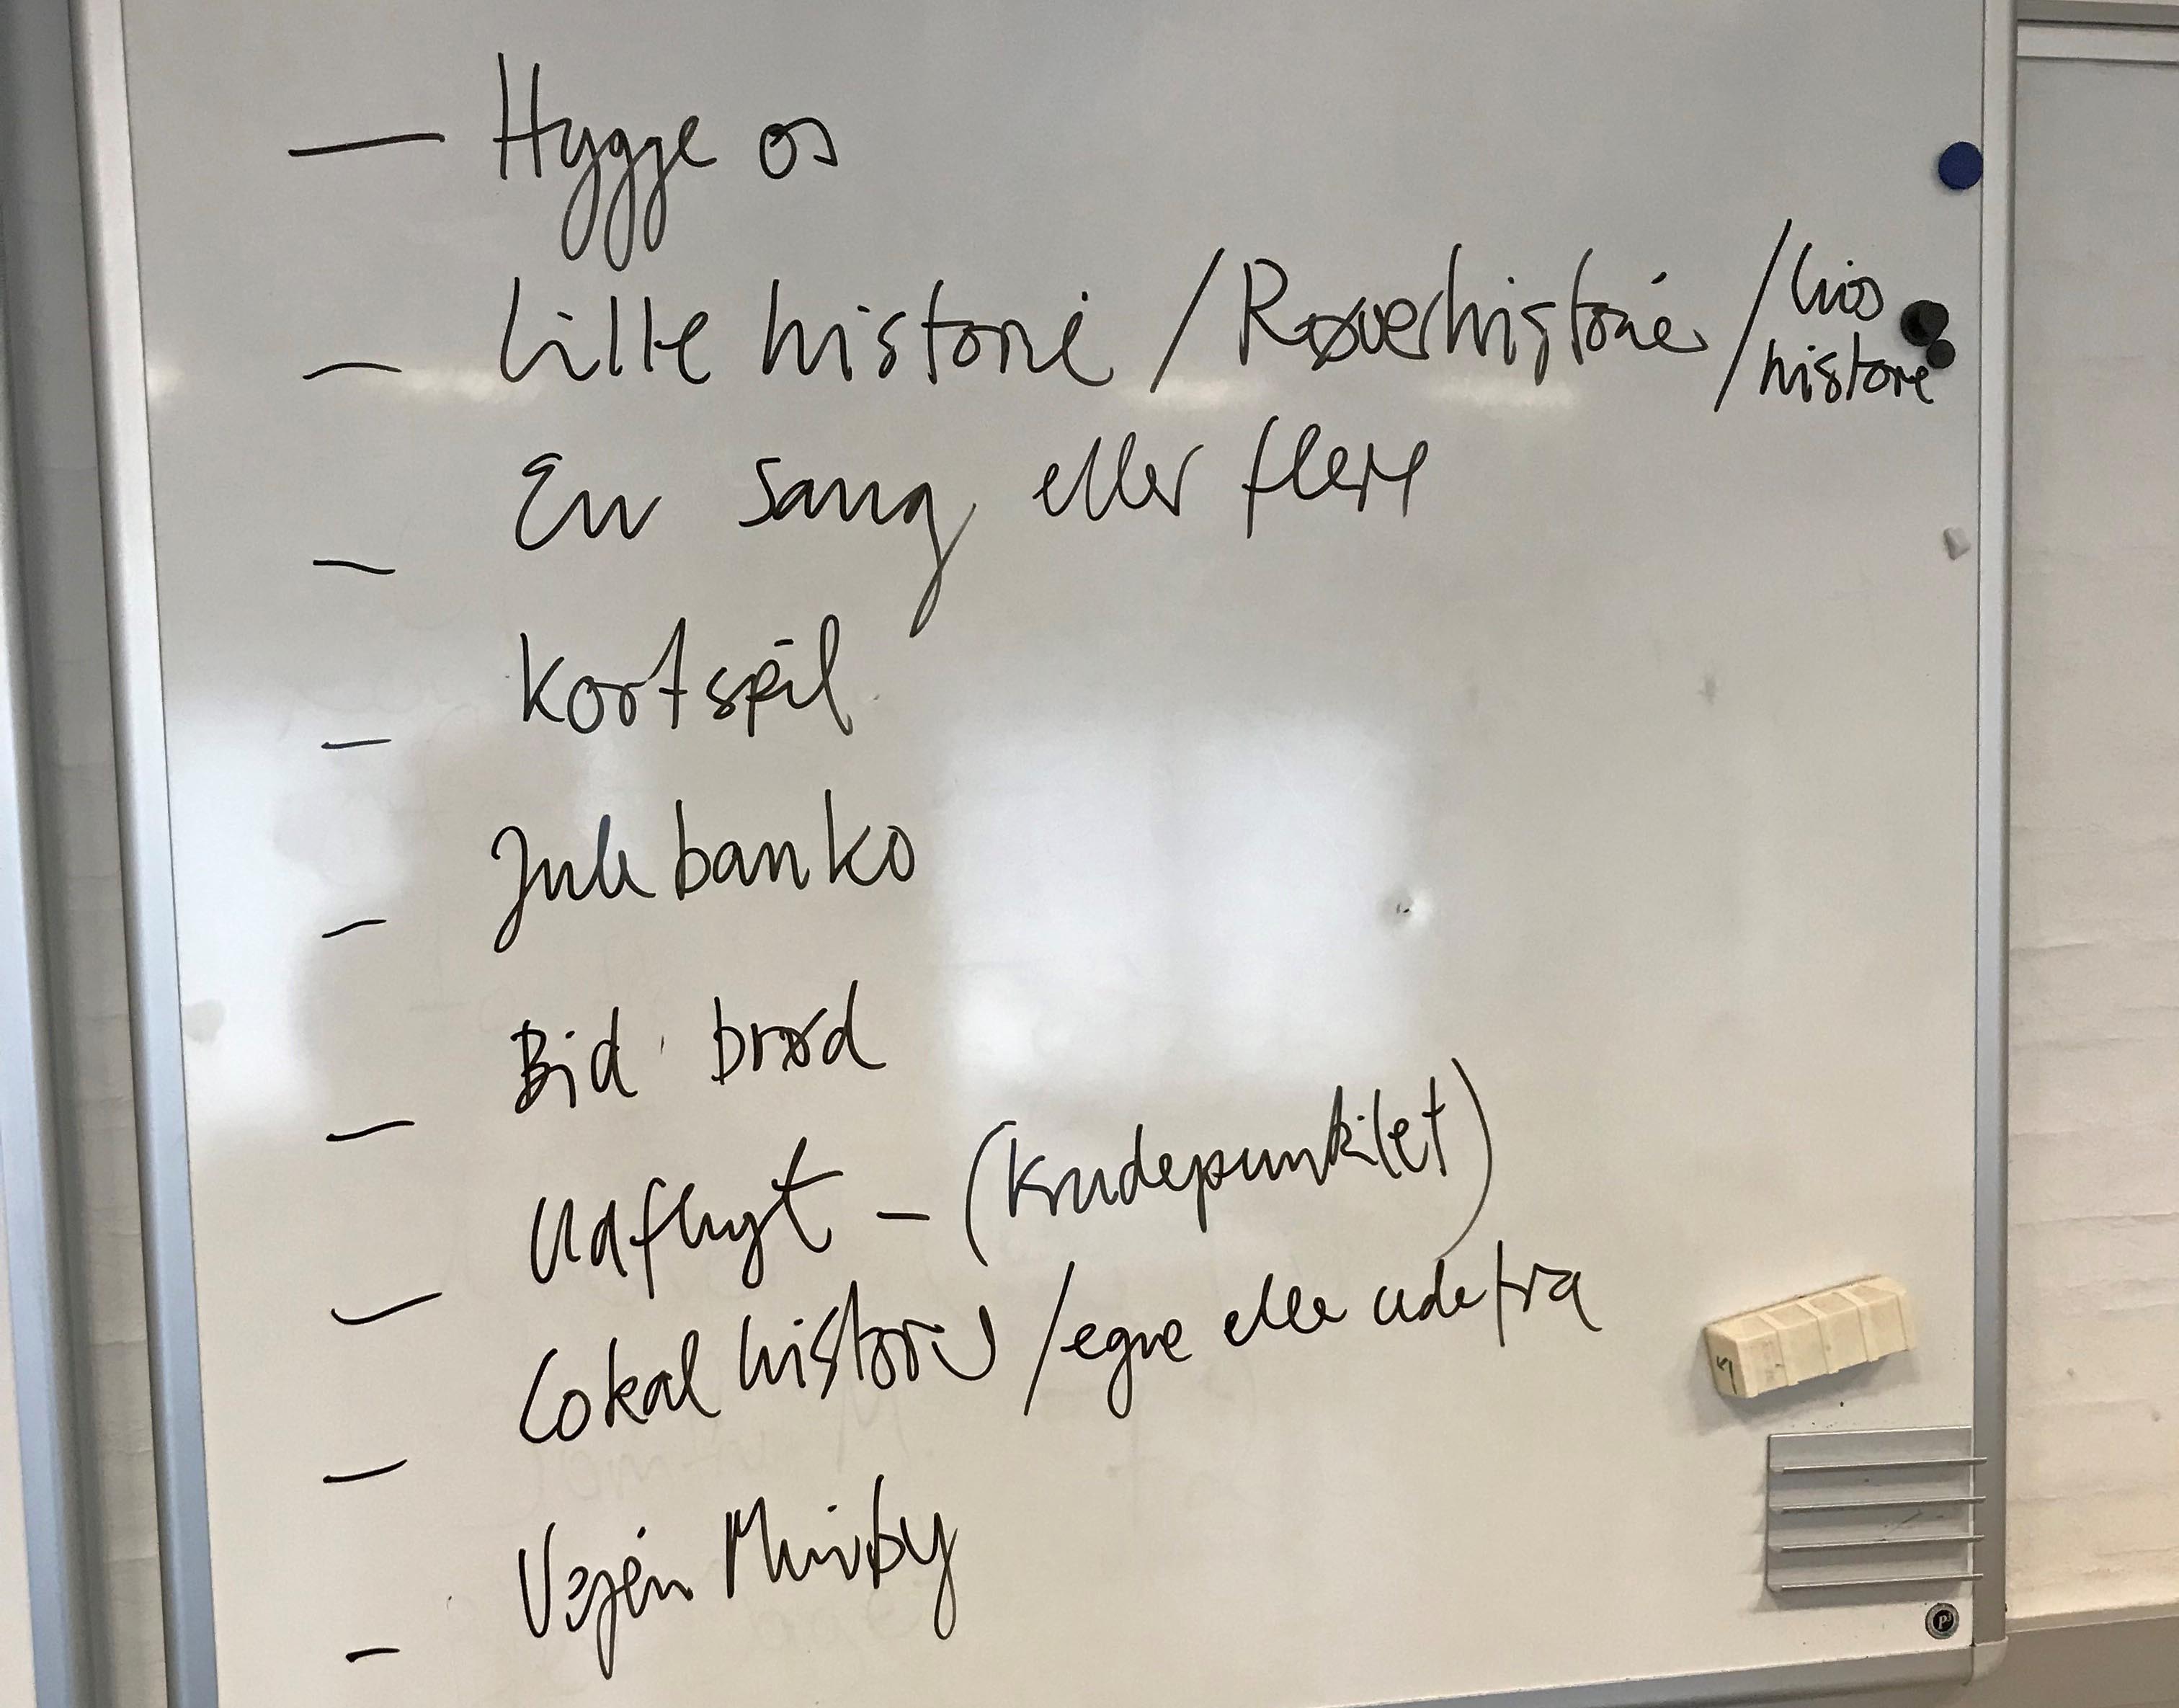 — Hygge os
— Lille historie / Røverhistorie / livshistorie
— En sang eller flere
— Kortspil
— Julebanko
— Bid brød
— Udflugt – (Knudepunktet)
— Lokal historie / egne eller udefra
— Vejen Miniby